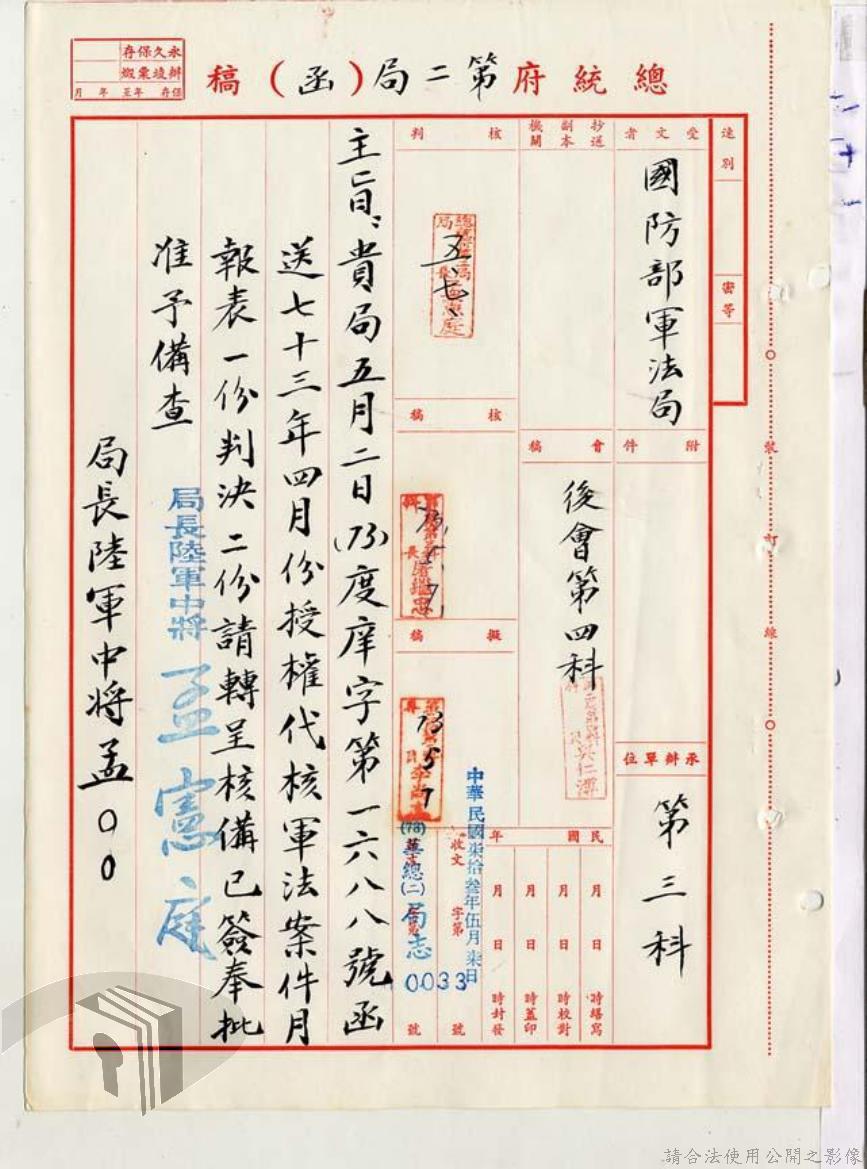 總統府第二局(函)稿
永久保存
保存 年至 年 月
速別
密等
受文者
國防部軍法局
抄送副本機關
核判
五、七、
附件
會稿
後會第四科
核稿
73.5.7
擬稿
73 5 7
承辦單位
第三科
民國 年
月 日 時繕寫
月 日 時校對
月 日 時蓋印
月 日 時封發
收文 字第 號
中華民國柒拾叁年伍月柒日
(73)華總(二)局志 0033 號
主旨、貴局五月二日(73)度庠字第一六八八號函
送七十三年四月份授權代核軍法案件月
報表一份判決二份請轉呈核備已簽奉批
准予備查
局長陸軍中將 孟憲庭
局長陸軍中將孟〇〇
裝
訂
線
請合法使用公開之影像